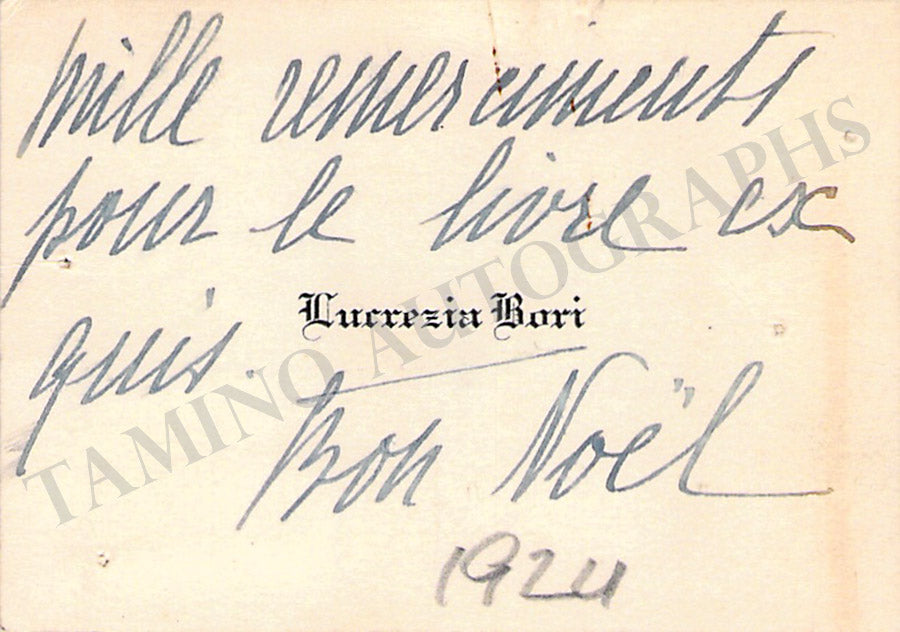 Mille remerciments
pour le livre ex
quis.
Lucrezia Bori
Bon Noël
1924
TAMINO AUTOGRAPHS